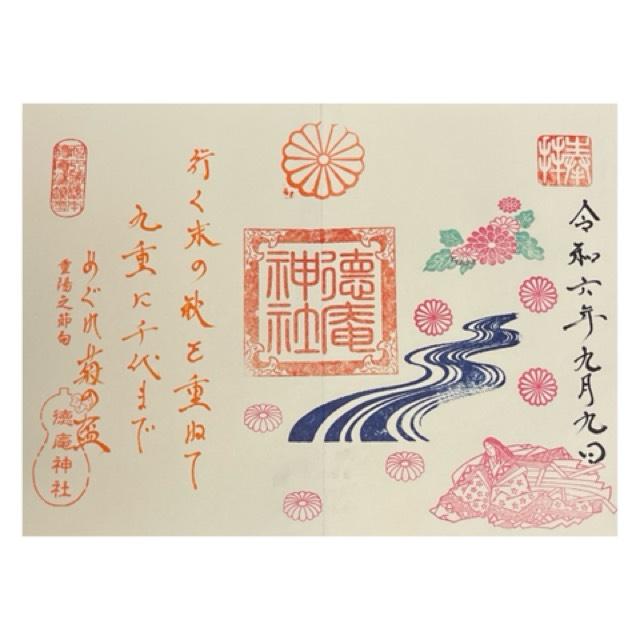 奉拝
令和六年九月九日
徳庵
神社
行く末の秋を重ねて
九重に千代まで
めぐれ菊の盃
重陽之節句
徳庵神社